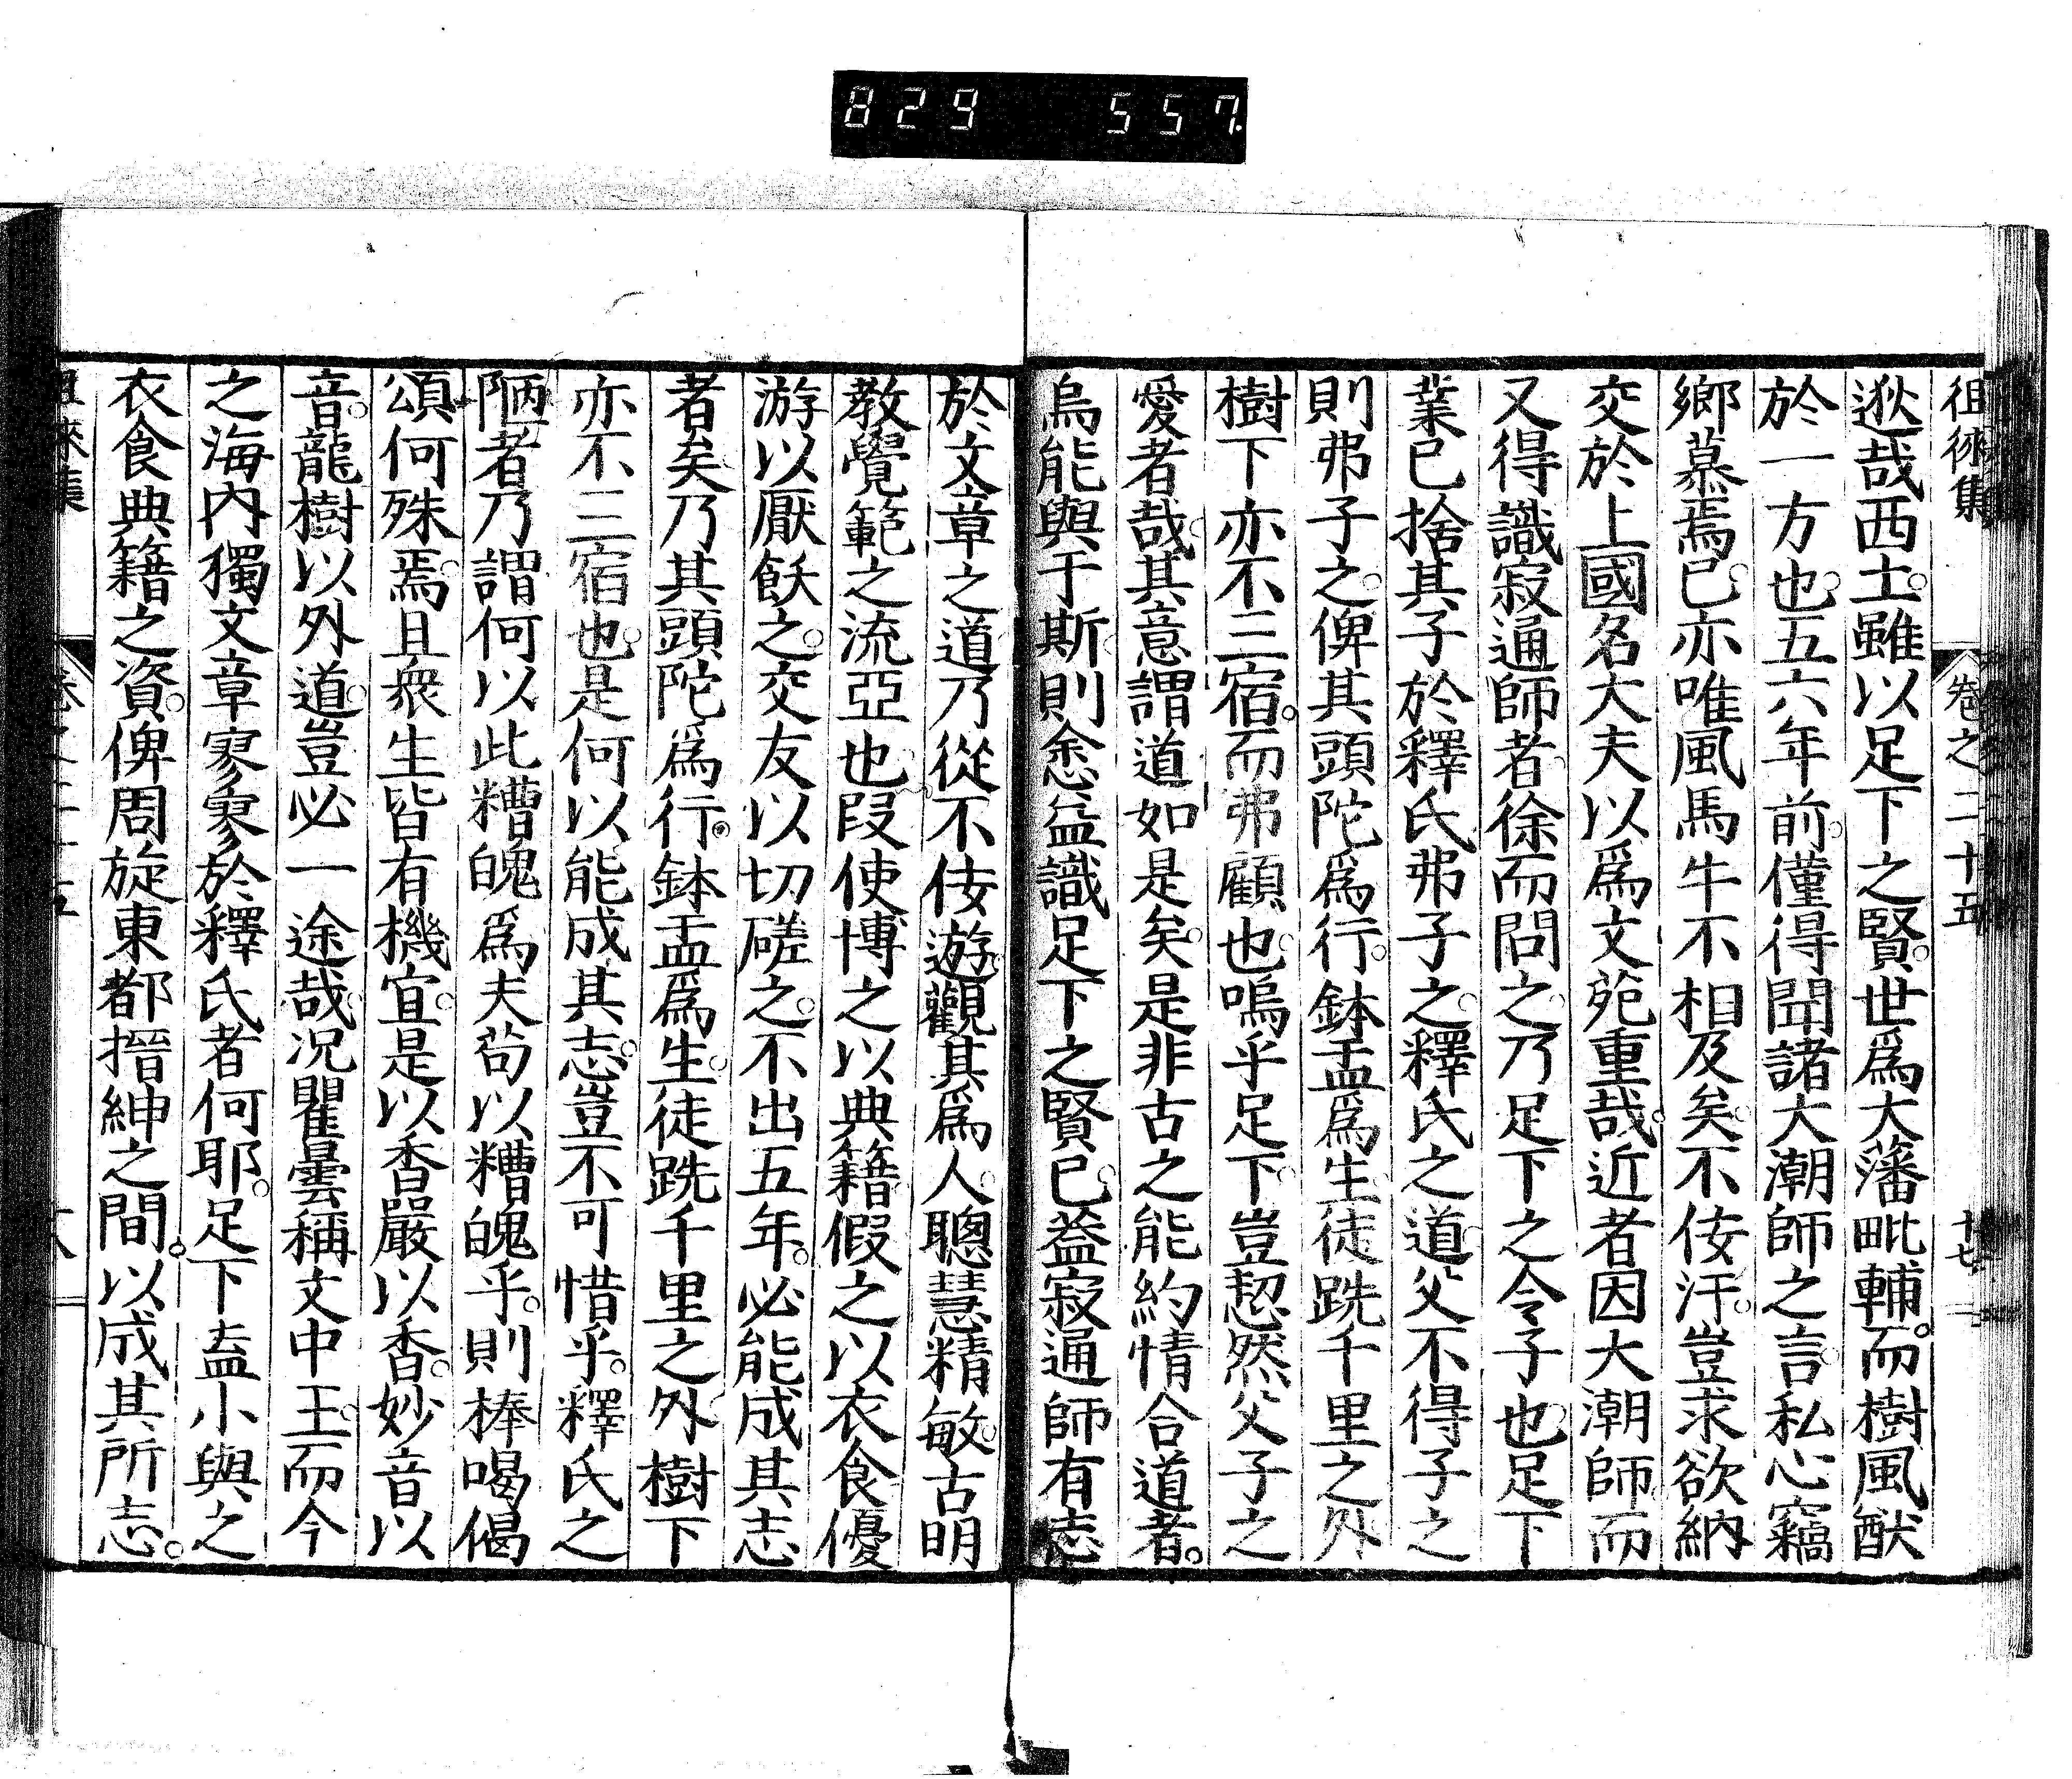 829 557
徂徠集 卷之二十五 十七
逖哉西土。雖以足下之賢。世爲大藩毗輔。而樹風猷
於一方也。五六年前。僅得聞諸大潮師之言。私心竊
鄉慕焉。已亦唯風馬牛不相及矣。不佞汗。豈求欲納
交於上國名大夫以爲文苑重哉。近者因大潮師。而
又得識寂通師者。徐而問之。乃足下之令子也。足下
業已捨其子於釋氏弗子之。釋氏之道。父不得子之
則弗子之。俾其頭陀爲行。鉢盂爲生。徒跣千里之外
樹下亦不三宿。而弗顧也。嗚乎足下。豈恝然父子之
愛者哉。其意謂道如是矣。是非古之能約情合道者。
烏能與于斯。則悆益識足下之賢已。葢寂通師有志
於文章之道。乃從不佞遊。觀其爲人。聰慧精敏。古明
教覺範之流亞也。叚使博之以典籍。假之以衣食。優
游以厭飫之。交友以切磋之。不出五年。必能成其志
者矣。乃其頭陀爲行。鉢盂爲生。徒跣千里之外。樹下
亦不三宿也。是何以能成其志。豈不可惜乎。釋氏之
陋者。乃謂何以此糟魄爲。夫茍以糟魄乎。則棒喝偈
頌何殊焉。且衆生皆有機宜。是以香嚴以香。妙音以
音。龍樹以外道。豈必一途哉。况瞿曇稱文中王。而今
之海內獨文章寥寥於釋氏者何耶。足下盍小與之
衣食典籍之資。俾周旋東都搢紳之間。以成其所志。